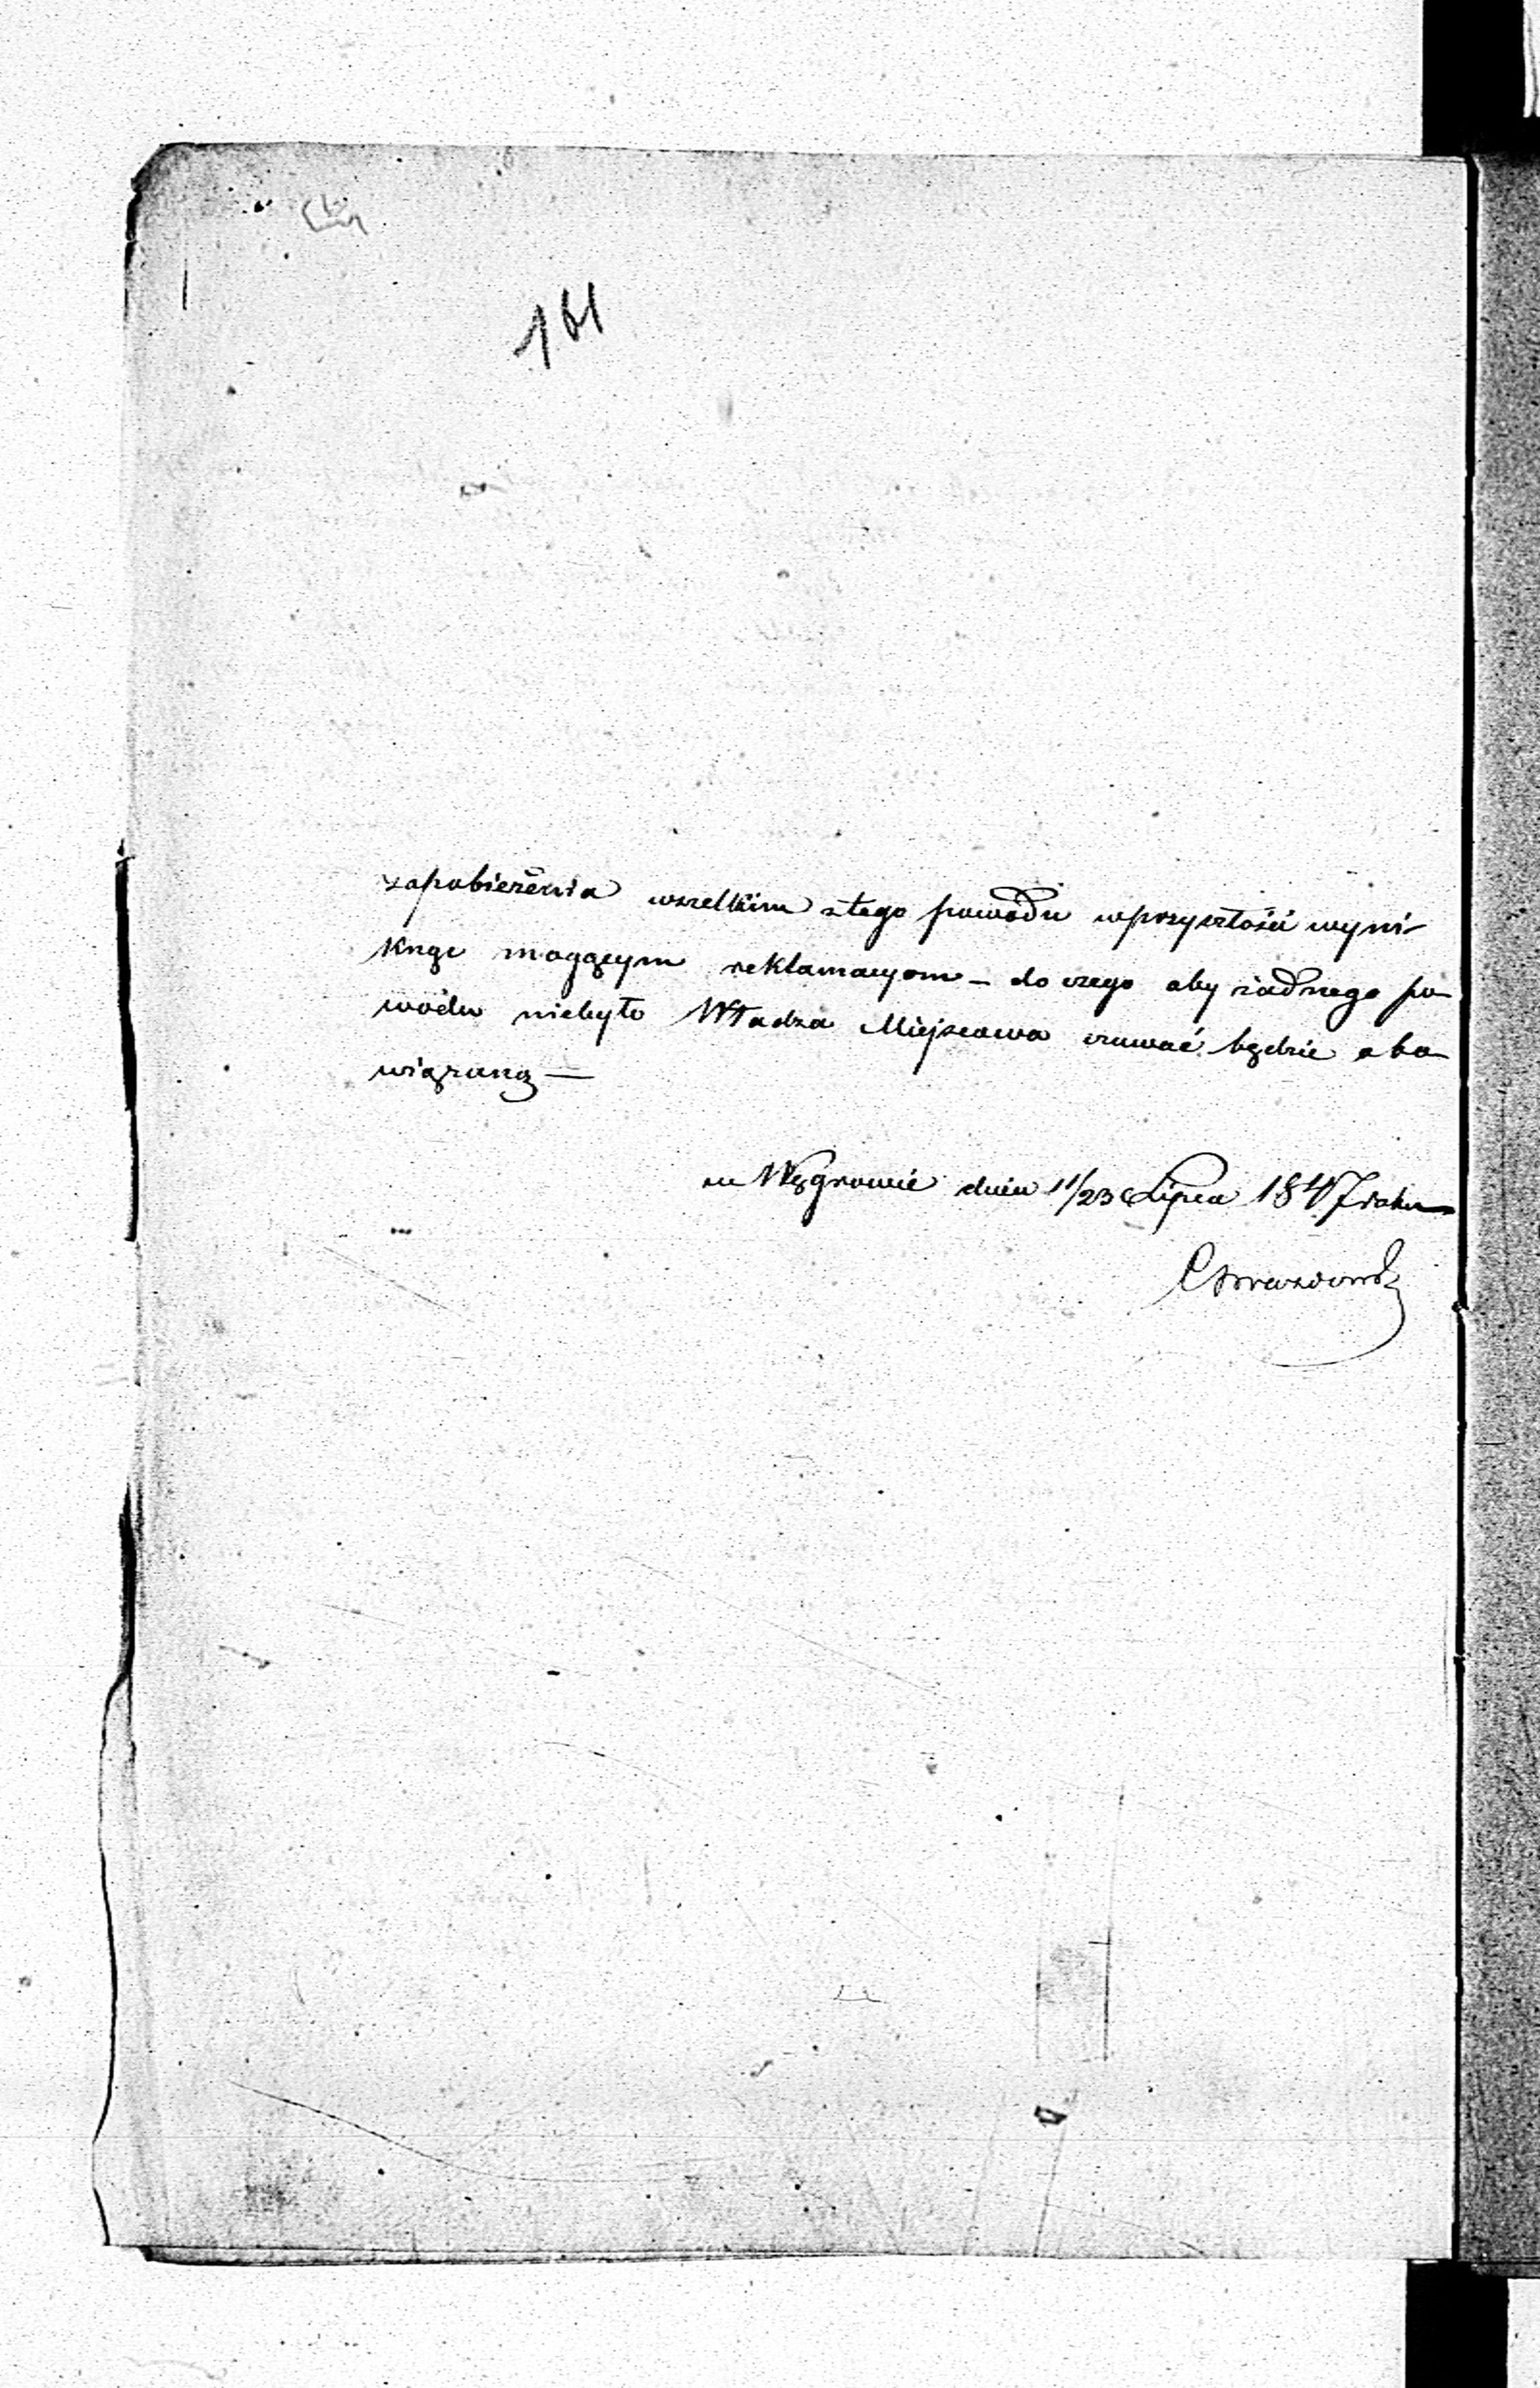 161
zapobieżenia wszelkim ztego powodu wprzyszłości wyni-
knąć mogącym reklamacyom – do czego aby żadnego po-
wodu niebyło Władza Miejscowa czuwać będzie obo-
wiązaną —
w Węgrowie dnia 11/23 Lipca 1847 roku